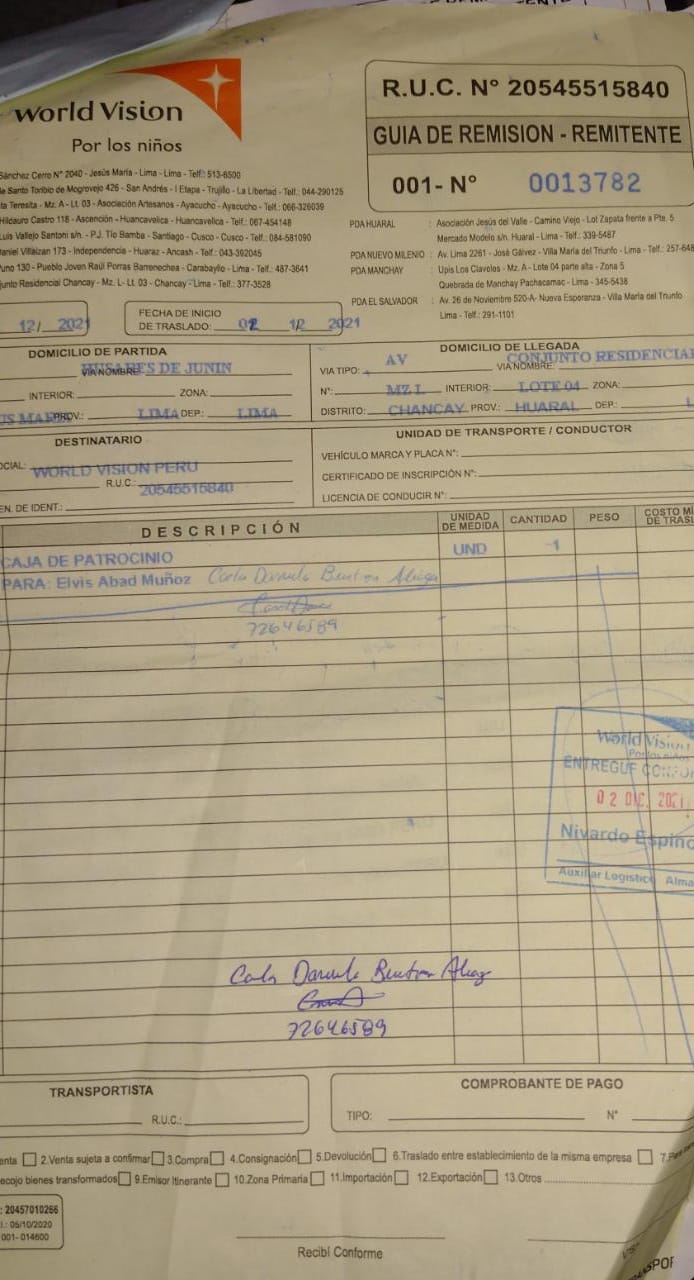 World Vision
Por los niños
R.U.C. N° 20545515840
GUIA DE REMISION - REMITENTE
001- N° 0013782
Sánchez Cerro N° 2040 - Jesús María - Lima - Lima - Telf.: 513-6500
Santo Toribio de Mogrovejo 426 - San Andrés - I Etapa - Trujillo - La Libertad - Tel.: 044-290125
ta Teresita - Mz. A - Lt. 03 - Asociación Artesanos - Ayacucho - Ayacucho - Telf.: 066-326039
Hildauro Castro 118 - Ascención - Huancavelica - Huancavelica - Tel.: 067-454148
Luis Vallejo Santoni s/n. - P.J. Tío Bamba - Santiago - Cusco - Cusco - Telf.: 084-581090
aniel Villaizan 173 - Independencia - Huaraz - Ancash - Telf.: 043-392045
uno 130 - Pueblo Joven Raúl Porras Barrenechea - Carabayllo - Lima - Telf.: 487-3641
junto Residencial Chancay - Mz. L- Lt. 03 - Chancay - Lima - Telf.: 377-3528
PDA HUARAL : Asociación Jesús del Valle - Camino Viejo - Lot Zapata frente a Pte. 5
Mercado Modelo s/n. Huaral - Lima - Telf.: 339-5487
PDA NUEVO MILENIO : Av. Lima 2261 - José Gálvez - Villa María del Triunfo - Lima - Telf.: 257-648
PDA MANCHAY : Upis Los Claveles - Mz. A - Lote 04 parte alta - Zona 5
Quebrada de Manchay Pachacamac - Lima - 345-5436
PDA EL SALVADOR : Av. 26 de Noviembre 520-A- Nueva Esperanza - Villa María del Triunfo
Lima - Telf.: 291-1101
12/ 2021
FECHA DE INICIO
DE TRASLADO: 02 12 2021
DOMICILIO DE PARTIDA
VIA NOMBRE: HUSARES DE JUNIN
INTERIOR: ZONA:
US MARIA PROV.: LIMA DEP.: LIMA
DOMICILIO DE LLEGADA
VIA TIPO: AV VIA NOMBRE: CONJUNTO RESIDENCIAL
N°: MZ L INTERIOR: LOTE 04 ZONA:
DISTRITO: CHANCAY PROV.: HUARAL DEP.: L
DESTINATARIO
OCIAL: WORLD VISION PERU
R.U.C.: 20545515840
EN. DE IDENT.:
UNIDAD DE TRANSPORTE / CONDUCTOR
VEHÍCULO MARCA Y PLACA N°:
CERTIFICADO DE INSCRIPCIÓN N°:
LICENCIA DE CONDUCIR N°:
DESCRIPCIÓN UNIDAD DE MEDIDA CANTIDAD PESO COSTO MI DE TRASL
CAJA DE PATROCINIO UND 1
PARA: Elvis Abad Muñoz Carla Daniela Benton Aliaga
72646589
World Vision
Por los niños
ENTREGUE CONFOR
02 DIC. 2021
Nivardo Espino
Auxiliar Logístico Alma
Carla Daniela Benton Aliaga
72646589
TRANSPORTISTA
R.U.C.:
COMPROBANTE DE PAGO
TIPO: N°
enta 2.Venta sujeta a confirmar 3.Compra 4.Consignación 5.Devolución 6.Traslado entre establecimiento de la misma empresa 7.Para
ecojo bienes transformados 9.Emisor Itinerante 10.Zona Primaria 11.Importación 12.Exportación 13.Otros
: 20457010266
I.: 05/10/2020
001- 014600
Recibí Conforme